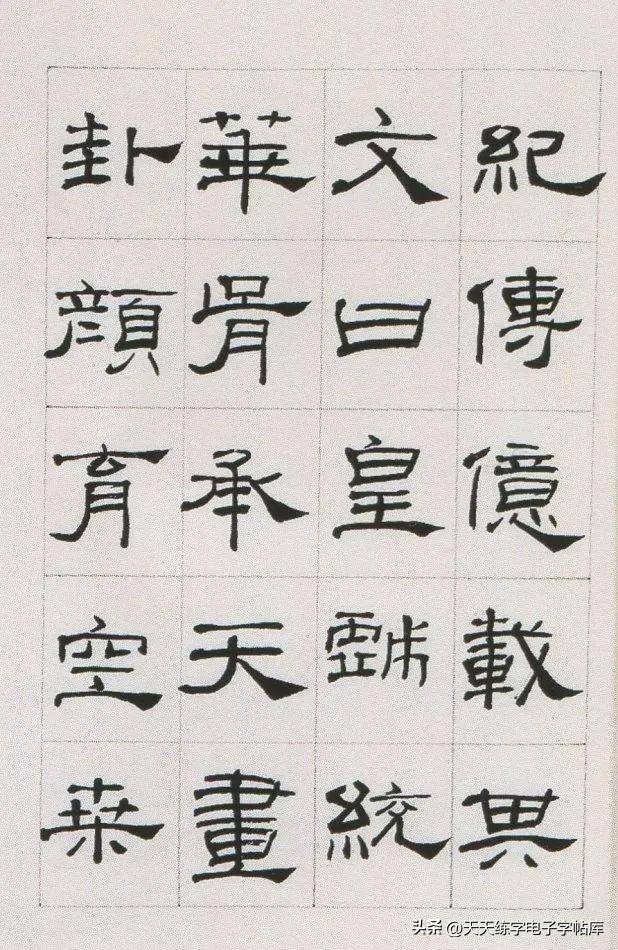 紀傳億載其
文曰皇戲統
華胥承天畫
卦顏育空桒
头条 @天天练字电子字帖库